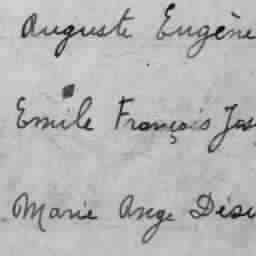 Auguste Eugène
Emile François Jos
Marie Ange Dési